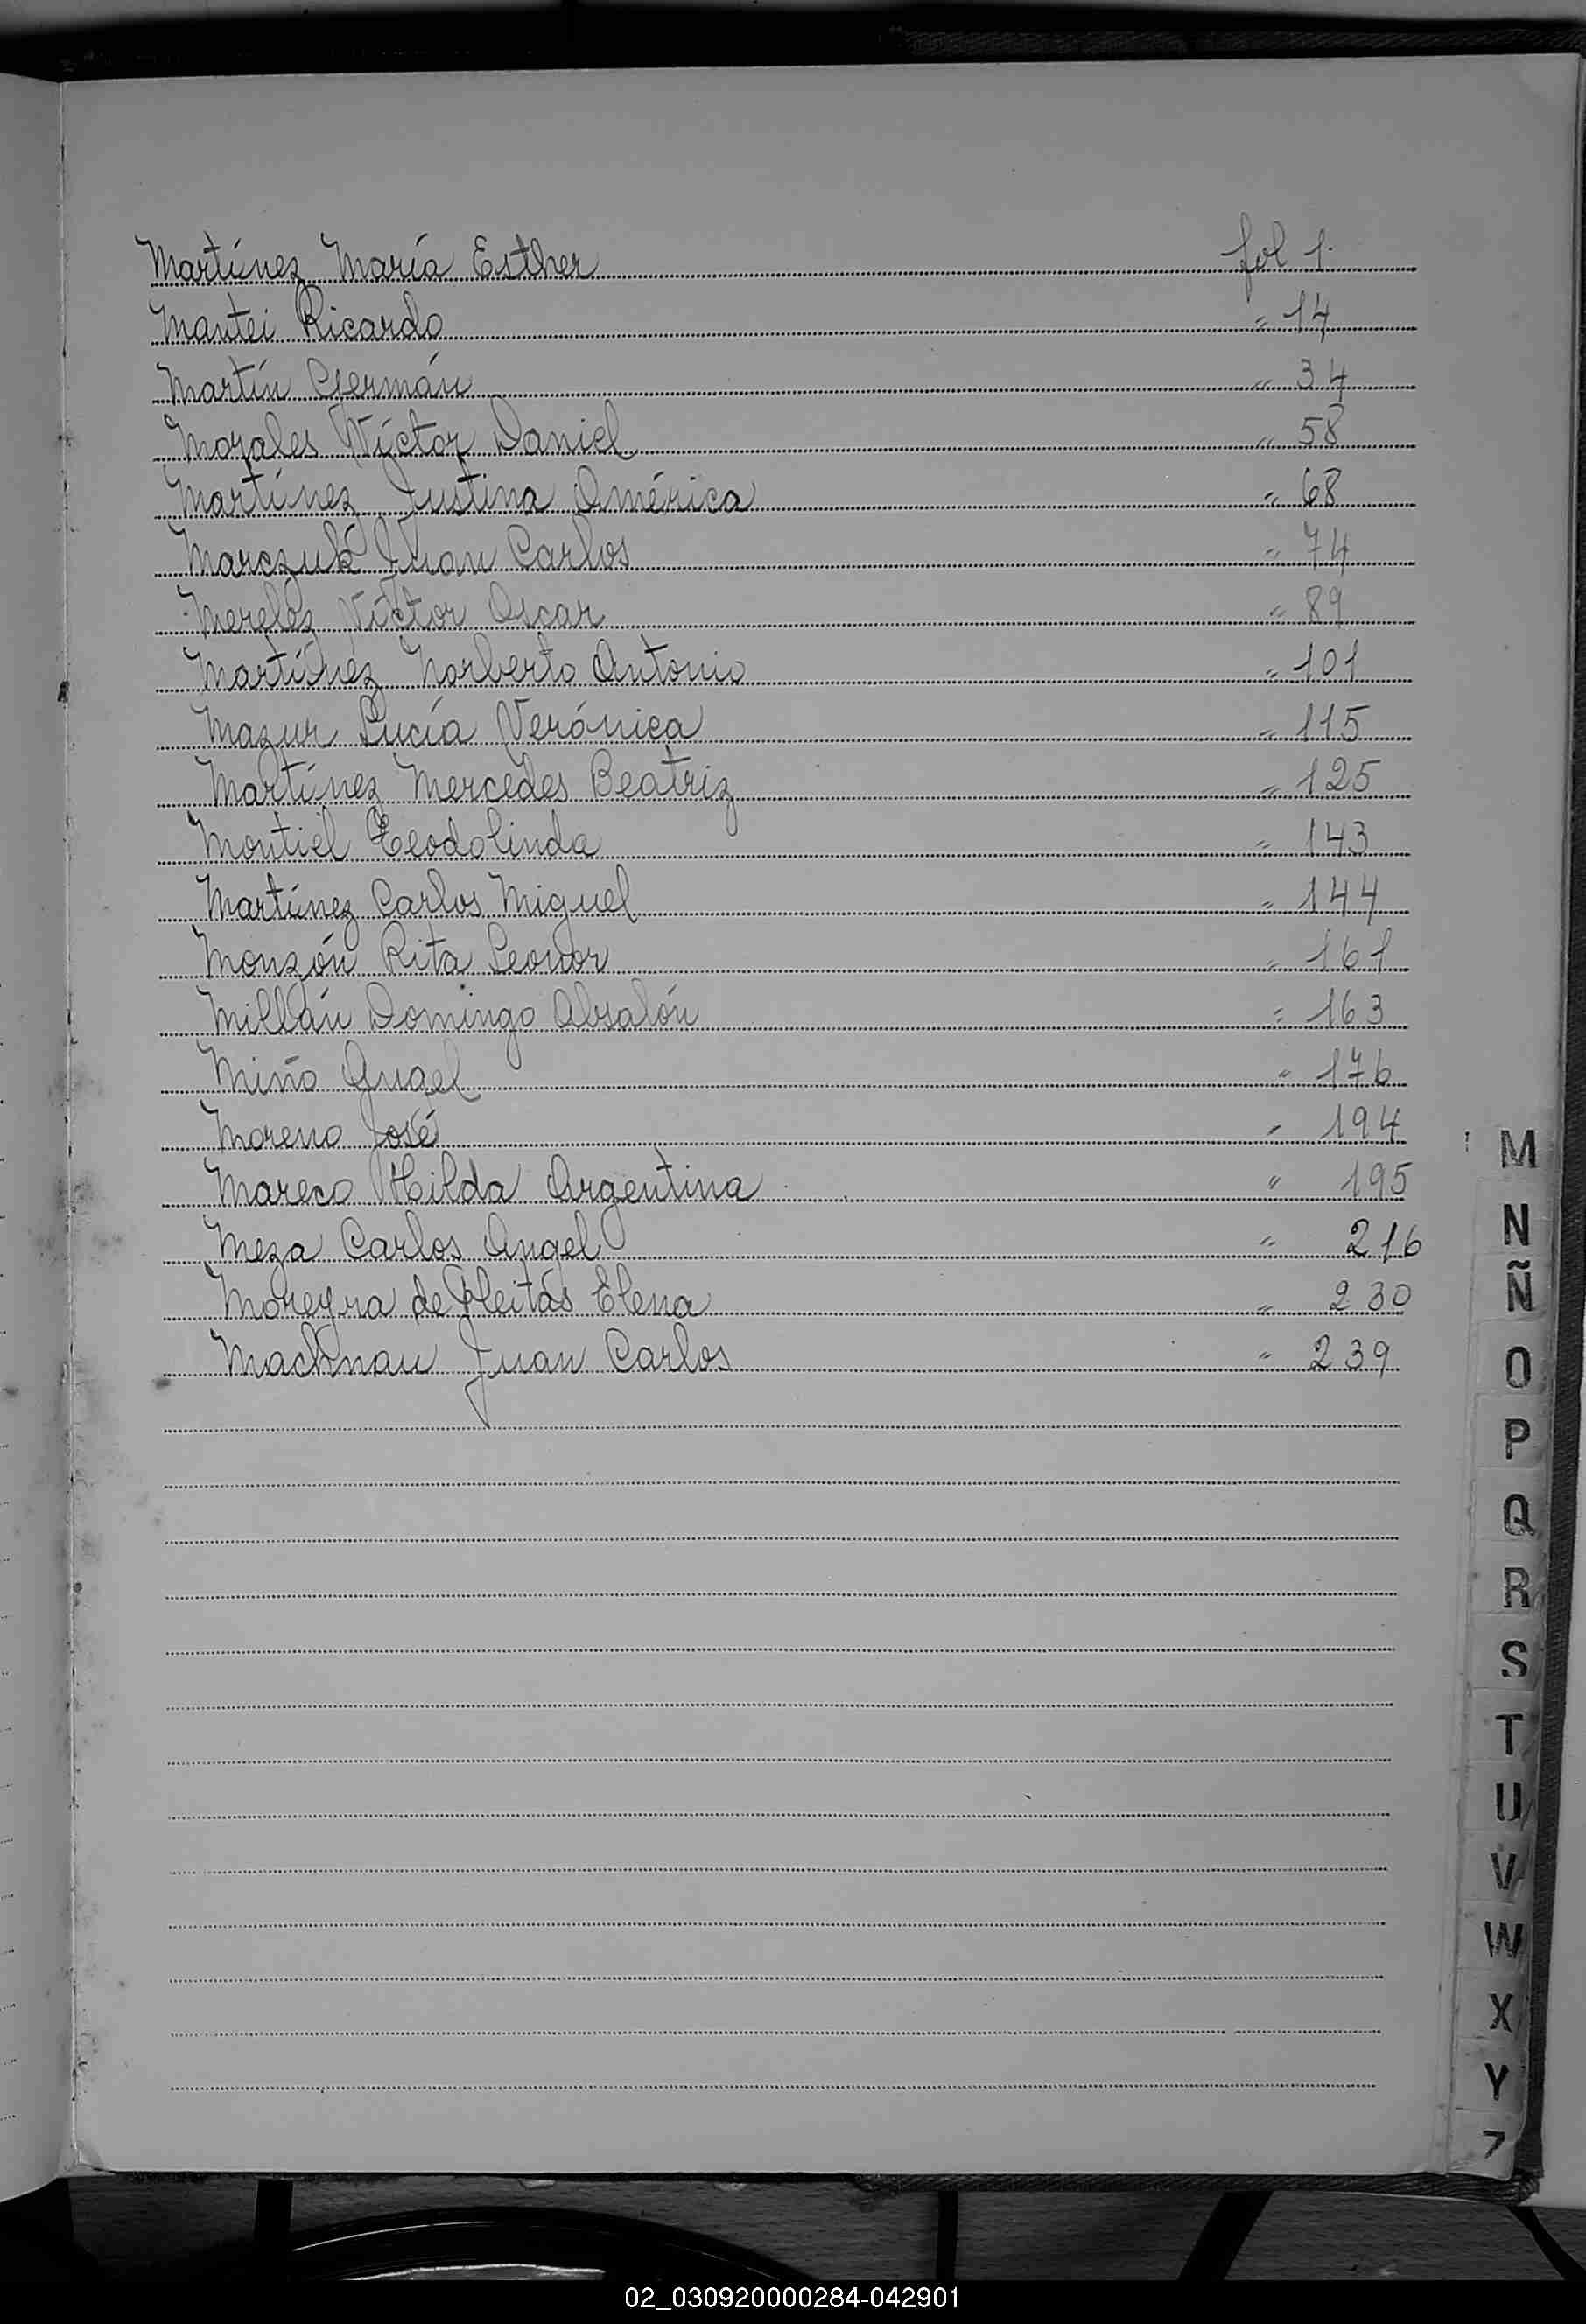 Martínez María Esther fol 1.
Mantei Ricardo " 14
Martín Germán " 34
Morales Víctor Daniel " 58
Martínez Justina América " 68
Marczuk Juan Carlos " 74
Mereles Víctor Oscar " 89
Martínez Norberto Antonio " 101
Mazur Lucía Verónica " 115
Martínez Mercedes Beatriz " 125
Montiel Teodolinda " 143
Martínez Carlos Miguel " 144
Monzón Rita Leonor " 161
Millán Domingo Absalón " 163
Miño Angel " 176
Moreno José " 194
Mareco Hilda Argentina " 195
Meza Carlos Angel " 216
Moreyra de Fleitas Elena " 230
Machnau Juan Carlos " 239
M
N
Ñ
O
P
Q
R
S
T
U
V
W
X
Y
Z
02_030920000284-042901